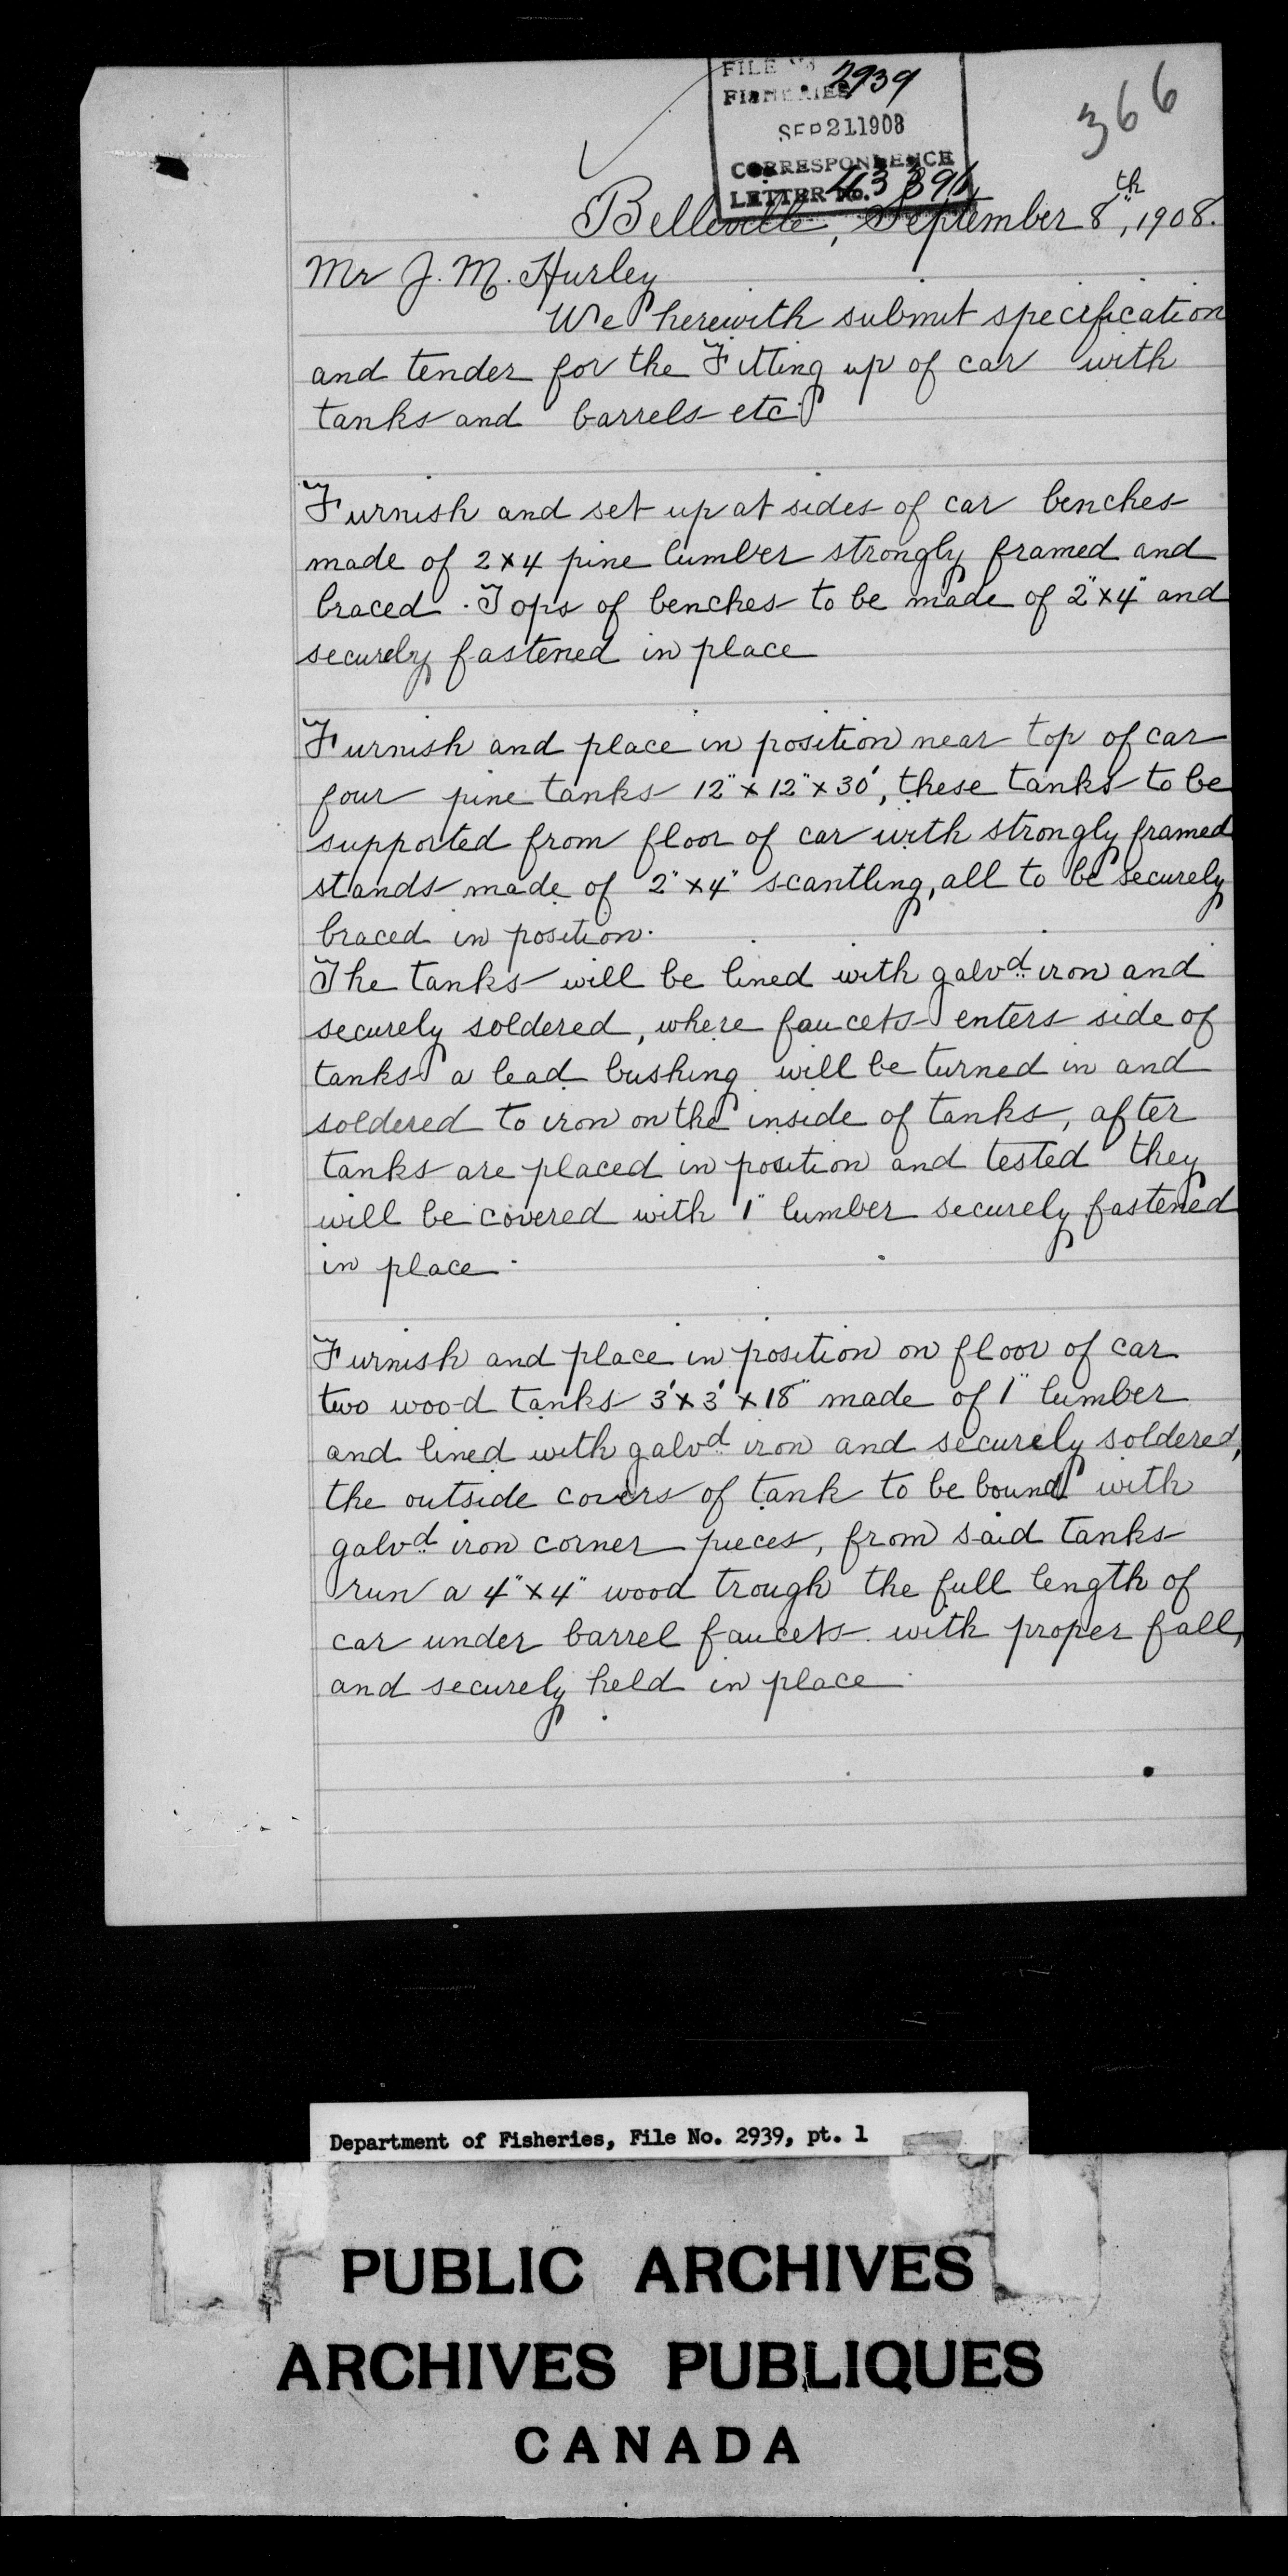 FILE No 2939
FISHERIES
366
SEP 21 1908
CORRESPONDENCE
LETTER No.
th
Belleville, September 8", 1908.
Mr J. M. Hurley
We herewith submit specification
and tender for the Fitting up of car with
tanks and barrels etc
Furnish and set up at sides of car benches
made of 2 x 4 pine lumber strongly framed and
braced. Tops of benches to be made of 2" x 4" and
securely fastened in place
Furnish and place in position near top of car
four pine tanks 12" x 12" x 30', these tanks to be
supported from floor of car with strongly framed
stands made of 2" x 4" scantling, all to be securely
braced in position.
The tanks will be lined with galvd iron and
securely soldered, where faucets enters side of
tanks a lead bushing will be turned in and
soldered to iron on the inside of tanks, after
tanks are placed in position and tested they
will be covered with 1" lumber securely fastened
in place.
Furnish and place in position on floor of car
two wood tanks 3' x 3' x 18" made of 1" lumber
and lined with galvd iron and securely soldered,
the outside covers of tank to be bound with
galvd iron corner pieces, from said tanks
run a 4" x 4" wood trough the full length of
car under barrel faucets with proper fall,
and securely held in place.
Department of Fisheries, File No. 2939, pt. 1
PUBLIC ARCHIVES
ARCHIVES PUBLIQUES
CANADA